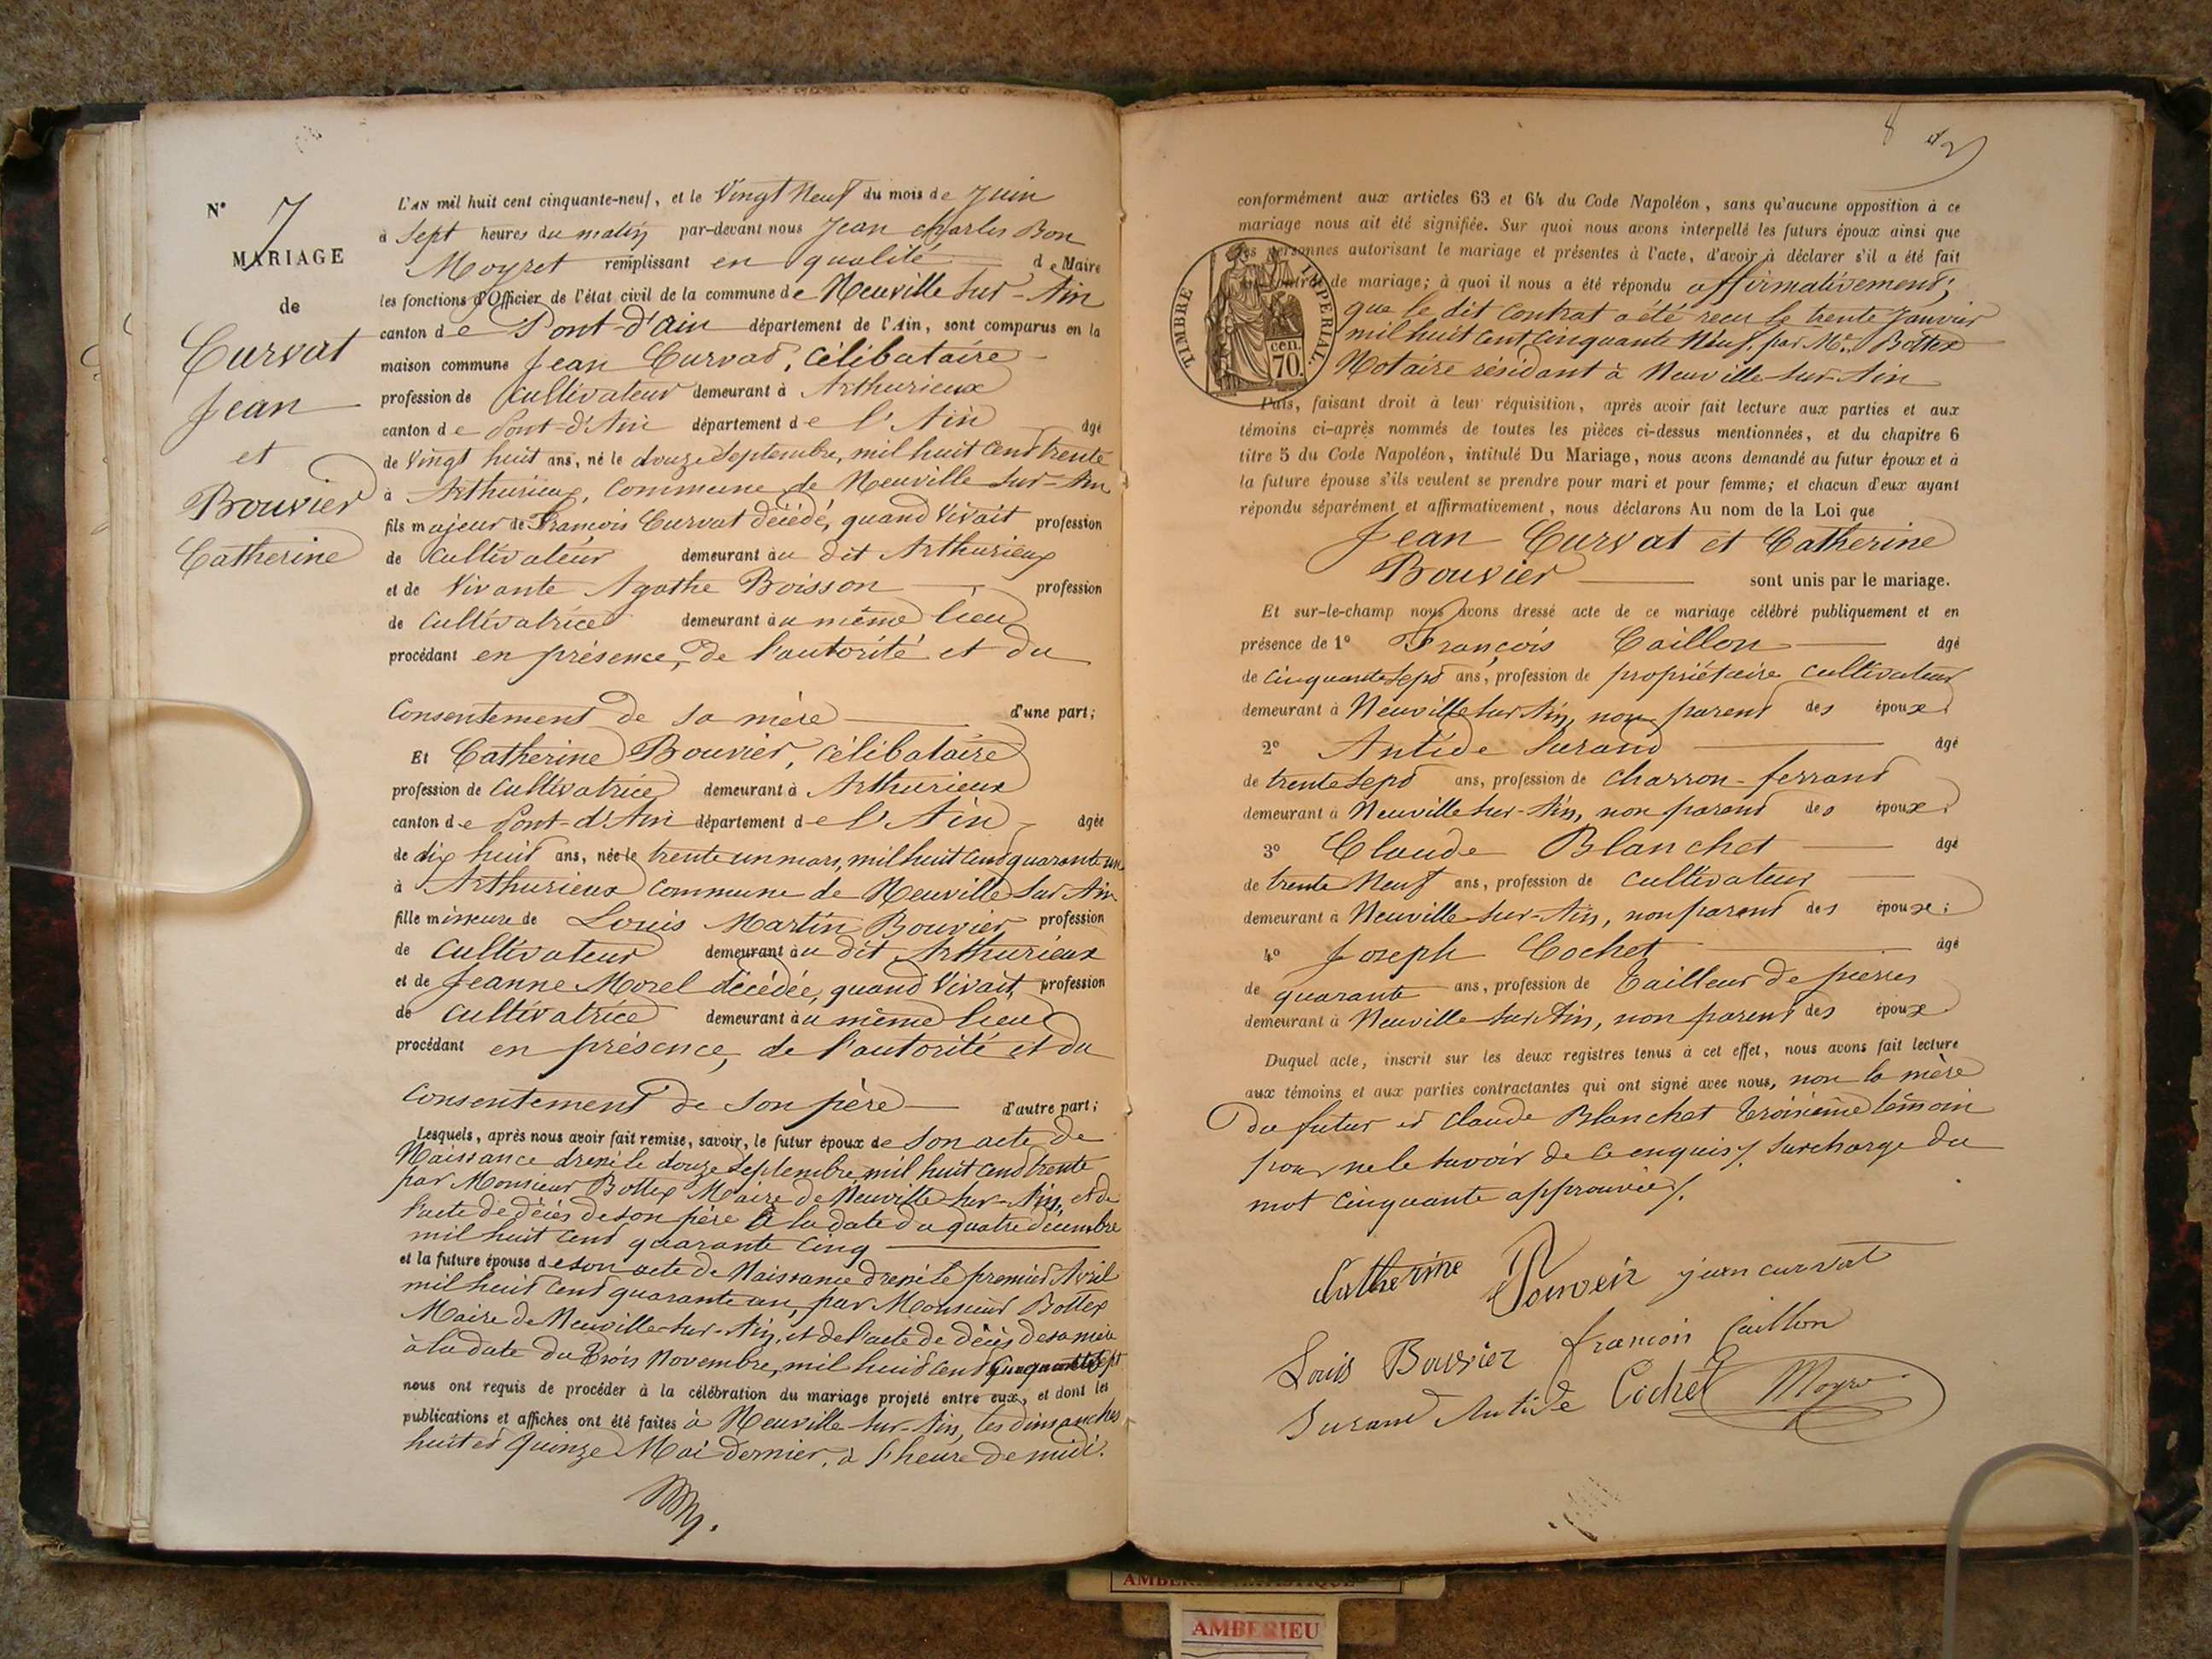 N° 7
MARIAGE
de
Curvat
Jean
et
Bouvier
Catherine
L'AN mil huit cent cinquante-neuf, et le Vingt Neuf du mois de Juin
à Sept heures du matin par-devant nous Jean Charles Bon
Moyret remplissant en qualité de Maire
les fonctions d'Officier de l'état civil de la commune de Neuville sur-Ain
canton de Pont-d'ain département de l'Ain, sont comparus en la
maison commune Jean Curvat, célibataire
profession de cultivateur demeurant à Arthurieux
canton de Pont-d'Ain département de l'Ain âgé
de Vingt huit ans, né le douze Septembre, mil huit cent trente
à Arthurieux, commune de Neuville sur-Ain
fils majeur de François Curvat décédé, quand Vivait profession
de cultivateur demeurant au dit Arthurieux
et de Vivante Agathe Boisson profession
de cultivatrice demeurant au même lieu
procédant en présence, de l'autorité et du
consentement de sa mère d'une part;
Et Catherine Bouvier, célibataire
profession de cultivatrice demeurant à Arthurieux
canton de Pont-d'Ain département de l'Ain âgée
de dix huit ans, née le trente un mars, mil huit cent quarante un
à Arthurieux commune de Neuville Sur Ain
fille mineure de Louis Martin Bouvier profession
de cultivateur demeurant au dit Arthurieux
et de Jeanne Morel décédée, quand Vivait, profession
de cultivatrice demeurant au même lieu
procédant en présence, de l'autorité et du
consentement de son père d'autre part;
Lesquels, après nous avoir fait remise, savoir, le futur époux de son acte de
Naissance dressé le douze Septembre, mil huit cent trente
par Monsieur Bottex Maire de Neuville sur-Ain, et de
l'acte de décès de son père à la date du quatre décembre
mil huit cent quarante cinq
et la future épouse de son acte de Naissance dressé le premier Avril
mil huit cent quarante un, par Monsieur Bottex
Maire de Neuville-sur-Ain, et de l'acte de décès de sa mère
à la date du trois Novembre, mil huit cent cinquante sept
nous ont requis de procéder à la célébration du mariage projeté entre eux, et dont les
publications et affiches ont été faites à Neuville-sur-Ain, les dimanches
huit et Quinze Mai dernier, à l'heure de midi.
conformément aux articles 63 et 64 du Code Napoléon, sans qu'aucune opposition à ce
mariage nous ait été signifiée. Sur quoi nous avons interpellé les futurs époux ainsi que
les personnes autorisant le mariage et présentes à l'acte, d'avoir à déclarer s'il a été fait
de mariage; à quoi il nous a été répondu affirmativement;
que le dit contrat a été reçu le trente Janvier
mil huit cent cinquante Neuf, par Me. Bottex
Notaire résidant à Neuville-sur-Ain
TIMBRE IMPERIAL.
cen.
70.
Puis, faisant droit à leur réquisition, après avoir fait lecture aux parties et aux
témoins ci-après nommés de toutes les pièces ci-dessus mentionnées, et du chapitre 6
titre 5 du Code Napoléon, intitulé Du Mariage, nous avons demandé au futur époux et à
la future épouse s'ils veulent se prendre pour mari et pour femme; et chacun d'eux ayant
répondu séparément et affirmativement, nous déclarons Au nom de la Loi que
Jean Curvat et Catherine
Bouvier sont unis par le mariage.
Et sur-le-champ nous avons dressé acte de ce mariage célébré publiquement et en
présence de 1° François Caillon âgé
de cinquante sept ans, profession de propriétaire cultivateur
demeurant à Neuville sur Ain, non parent des époux
2° Antide Surand âgé
de trente sept ans, profession de charron-ferrant
demeurant à Neuville sur-Ain, non parent des époux
3° Claude Blanchet âgé
de trente Neuf ans, profession de cultivateur
demeurant à Neuville-sur-Ain, non parent des époux;
4° Joseph Cochet âgé
de quarante ans, profession de tailleur de pierres
demeurant à Neuville-sur Ain, non parent des époux
Duquel acte, inscrit sur les deux registres tenus à cet effet, nous avons fait lecture
aux témoins et aux parties contractantes qui ont signé avec nous, non la mère
du futur et Claude Blanchet troisième témoin
pour ne le savoir de ce enquis /. surcharge du
mot cinquante approuvée /.
Catherine Bouveir jean curvat
Louis Bouvier francois Caillon
Surand Antide Cochet Moyret
AMBERIEU